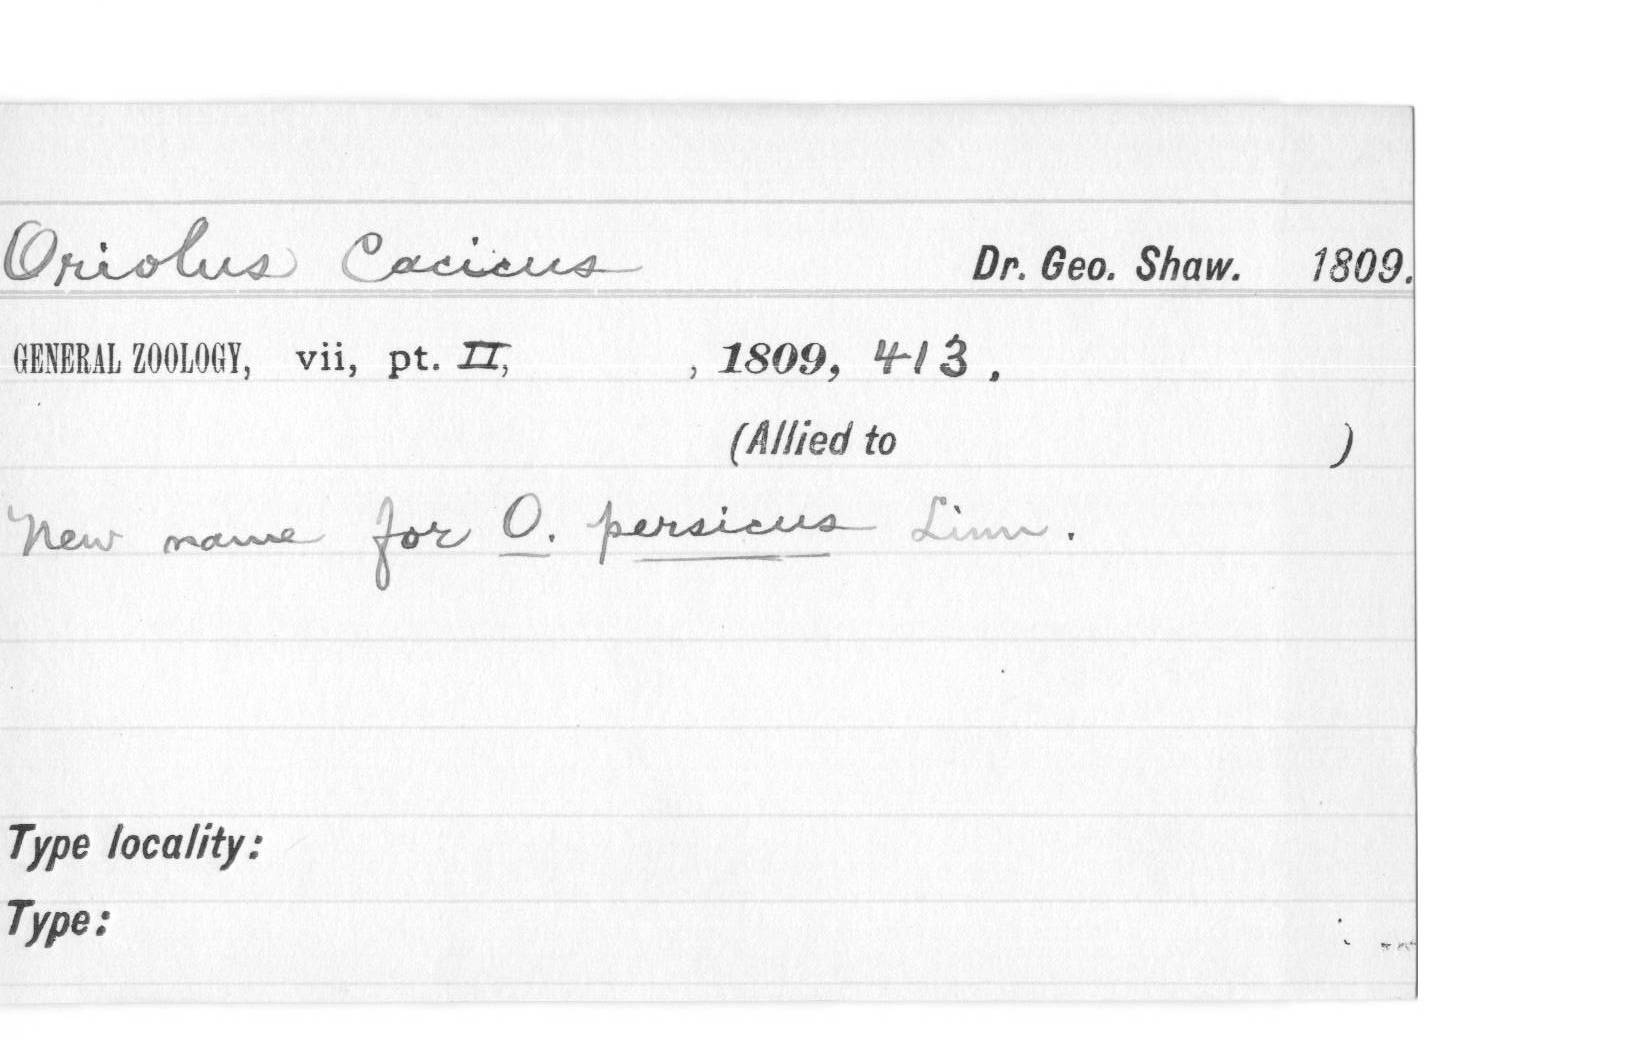 Oriolus Cacicus Dr. Geo. Shaw. 1809.
GENERAL ZOOLOGY, vii, pt. II, , 1809, 413.
(Allied to )
New name for O. persicus Linn.
Type locality:
Type: